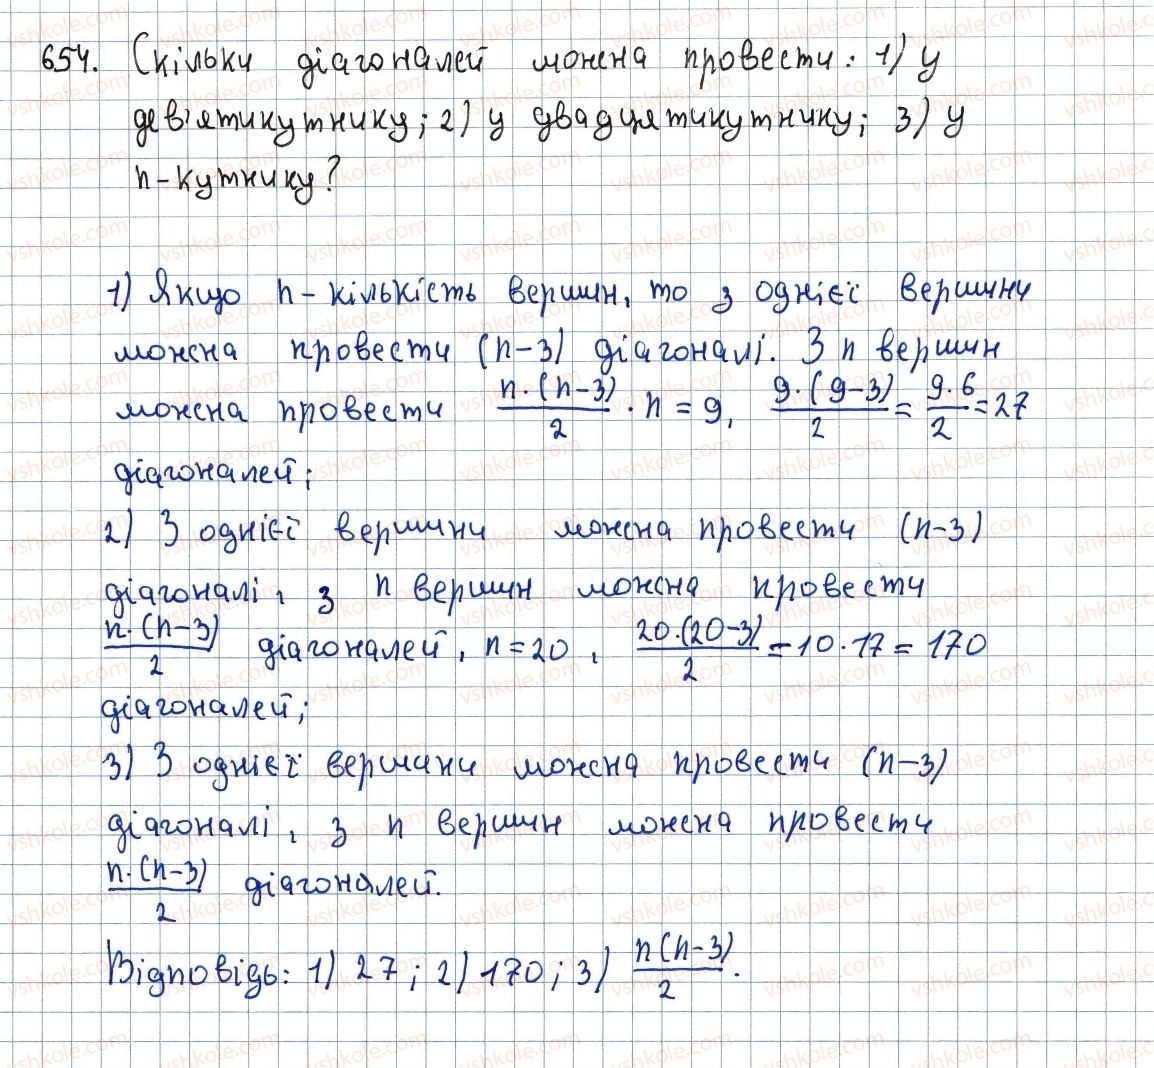 654. Скільки діагоналей можна провести: 1) у
дев'ятикутнику; 2) у двадцятикутнику; 3) у
n-кутнику?
1) Якщо n - кількість вершин, то з однієї вершини
можна провести (n-3) діагоналі. З n вершин
можна провести n·(n-3)/2 · n = 9, 9·(9-3)/2 = 9·6/2 = 27
діагоналей;
2) З однієї вершини можна провести (n-3)
діагоналі, з n вершин можна провести
n·(n-3)/2 діагоналей, n = 20, 20·(20-3)/2 = 10·17 = 170
діагоналей;
3) З однієї вершини можна провести (n-3)
діагоналі, з n вершин можна провести
n·(n-3)/2 діагоналей.
Відповідь: 1) 27; 2) 170; 3) n(n-3)/2.